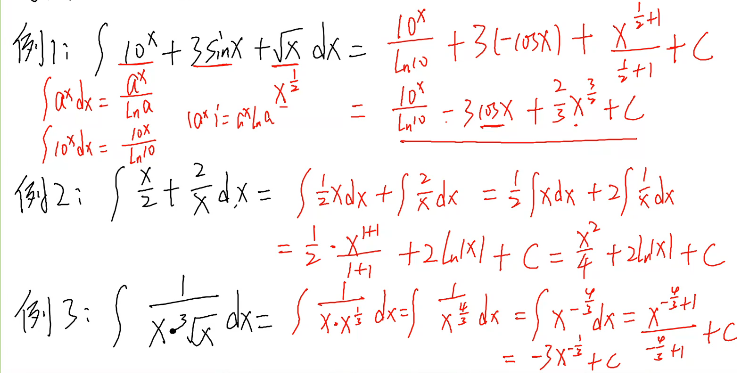 例1: ∫ 10^x + 3sinx + √x dx = 10^x/ln10 + 3(-cosx) + x^(1/2+1)/(1/2+1) + C
∫a^x dx = a^x/lna (a^x)' = a^x lna x^(1/2) = 10^x/ln10 - 3cosx + 2/3 x^(3/2) + C
∫10^x dx = 10^x/ln10
例2: ∫ x/2 + 2/x dx = ∫ 1/2 x dx + ∫ 2/x dx = 1/2 ∫x dx + 2∫ 1/x dx
= 1/2 · x^(1+1)/(1+1) + 2ln|x| + C = x²/4 + 2ln|x| + C
例3: ∫ 1/(x·³√x) dx = ∫ 1/(x·x^(1/3)) dx = ∫ 1/x^(4/3) dx = ∫ x^(-4/3) dx = x^(-4/3+1)/(-4/3+1) + C
= -3x^(-1/3) + C